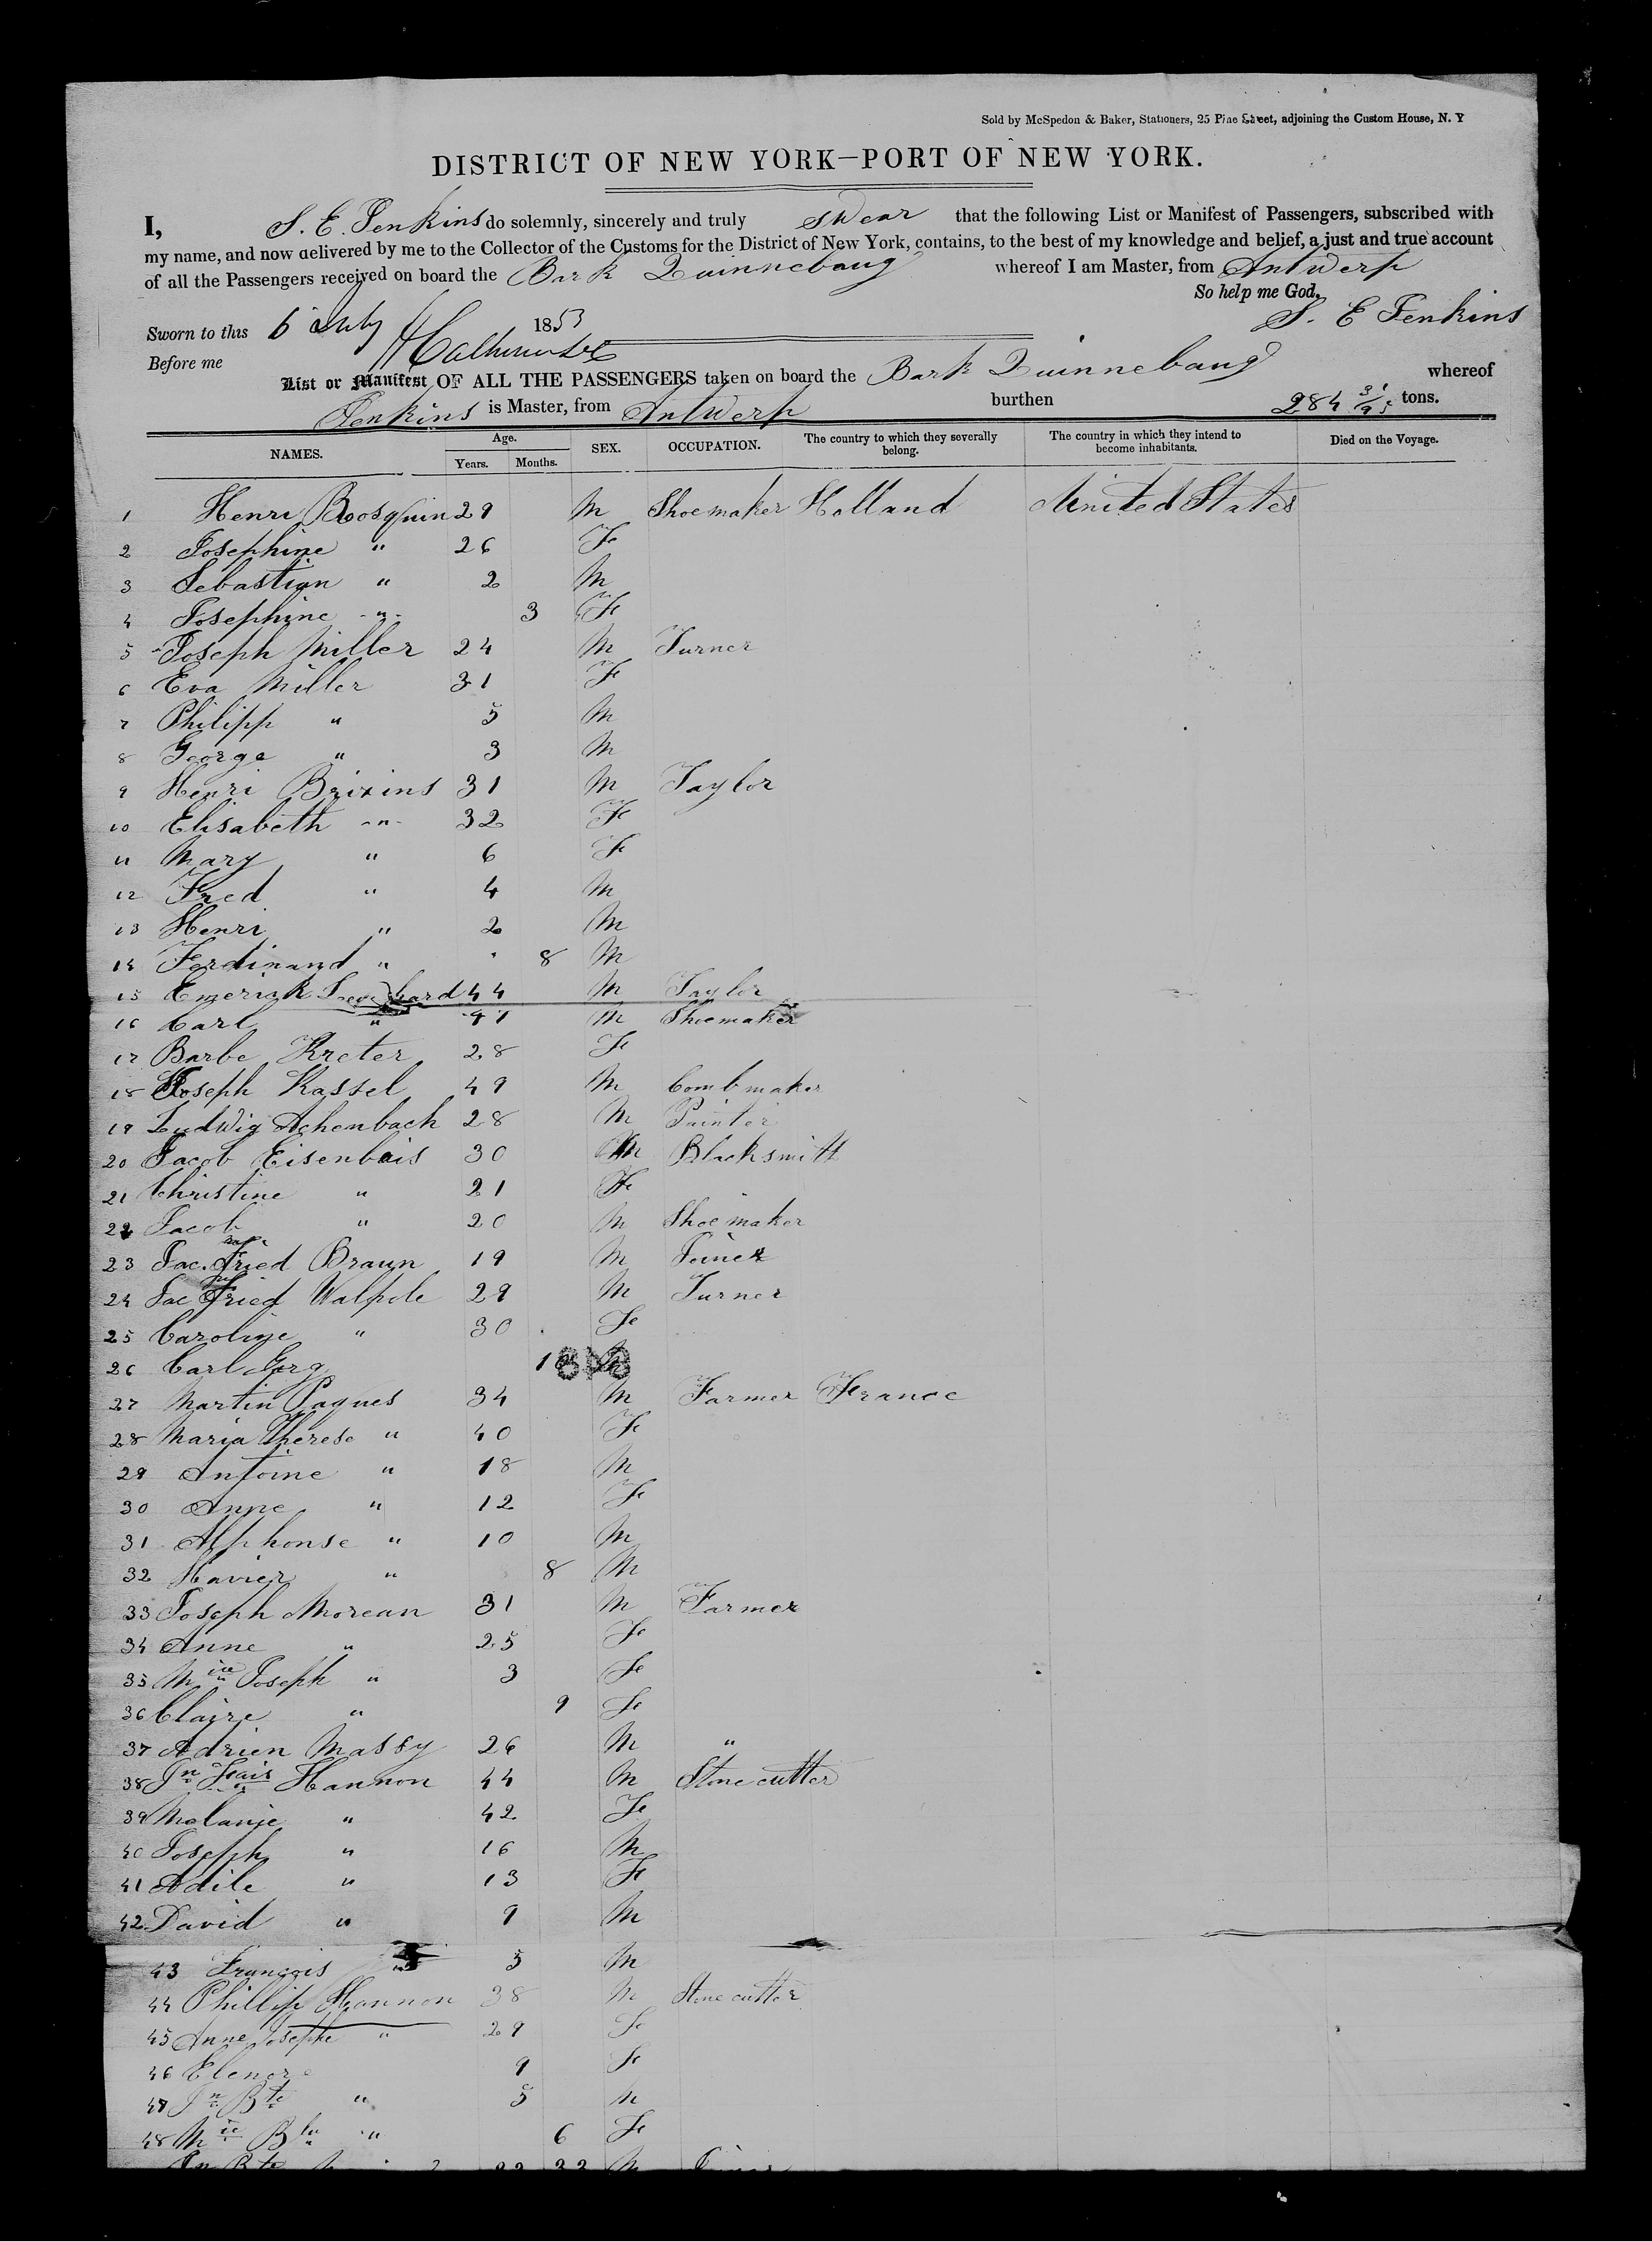 Sold by McSpedon & Baker, Stationers, 25 Pine Street, adjoining the Custom House, N. Y
DISTRICT OF NEW YORK—PORT OF NEW YORK.
I, S. E. Jenkins do solemnly, sincerely and truly swear that the following List or Manifest of Passengers, subscribed with
my name, and now delivered by me to the Collector of the Customs for the District of New York, contains, to the best of my knowledge and belief, a just and true account
of all the Passengers received on board the Bark Quinnebaug whereof I am Master, from Antwerp
So help me God,
S. E Jenkins
Sworn to this 6 July 1853
Before me
List or Manifest OF ALL THE PASSENGERS taken on board the Bark Quinnebaug whereof
Jenkins is Master, from Antwerp burthen 284 31/95 tons.
NAMES. Age. Years. Months. SEX. OCCUPATION. The country to which they severally belong. The country in which they intend to become inhabitants. Died on the Voyage.
1 Henri 29 M Shoemaker Holland United States
2 Josephine " 26 Fe
3 Sebastian " 2 M
4 Josephine " 3 Fe
5 Joseph Miller 24 M Turner
6 Eva Miller 31 Fe
7 Philipp " 5 M
8 George " 3 M
9 Henri Brixins 31 M Taylor
10 Elisabeth " 32 Fe
11 Mary " 6 Fe
12 Fred " 4 M
13 Henri " 2 M
14 Ferdinand " 8 M
15 Emerick 44 M Taylor
16 Carl " M Shoemaker
17 Barbe Kreter 28 Fe
18 Joseph Kassel 49 M Combmaker
19 Ludwig Achenbach 28 M Painter
20 Jacob Eisenbeis 30 M Blacksmith
21 Christine " 21 Fe
22 Jacob " 20 M Shoemaker
23 Jac. Fried Braun 19 M
24 Jac Fried Walpole 29 M Turner
25 Caroline " 30 Fe
26 Carl Gorg M
27 Martin Paques 34 M Farmer France
28 Maria Therese " 40 Fe
29 Antoine " 18 M
30 Anne " 12 Fe
31 Alphonse " 10 M
32 Xavier " 8 M
33 Joseph Moreau 31 M Farmer
34 Anne " 25 Fe
35 Mie Joseph " 3 Fe
36 Claire " 9 Fe
37 Adrien Massy 26 M "
38 Jn Frais Hannon 44 M Stone cutter
39 Melanie " 42 Fe
40 Joseph " 16 M
41 Adile " 13 Fe
42 David " 9 M
43 François " 5 M
44 Phillip Hannon 38 M Stone cutter
45 Anne Josephe " 29 Fe
46 Elenore 9 Fe
47 Jn Bte " 5 M
48 Mie " 6 Fe